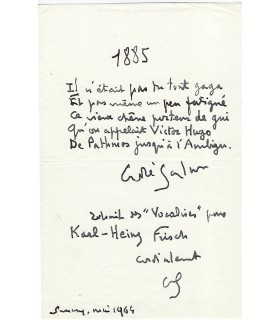 1885
Il n'était pas du tout gaga
Et pas même un peu fatigué
Ce vieux chêne porteur de gui
Qu'on appelait Victor Hugo
De Pathmos jusqu'à l'Ambigu.
André Salmon
extrait des "Vocalises" pour
Karl-Heinz Frisch
cordialement
mai 1964